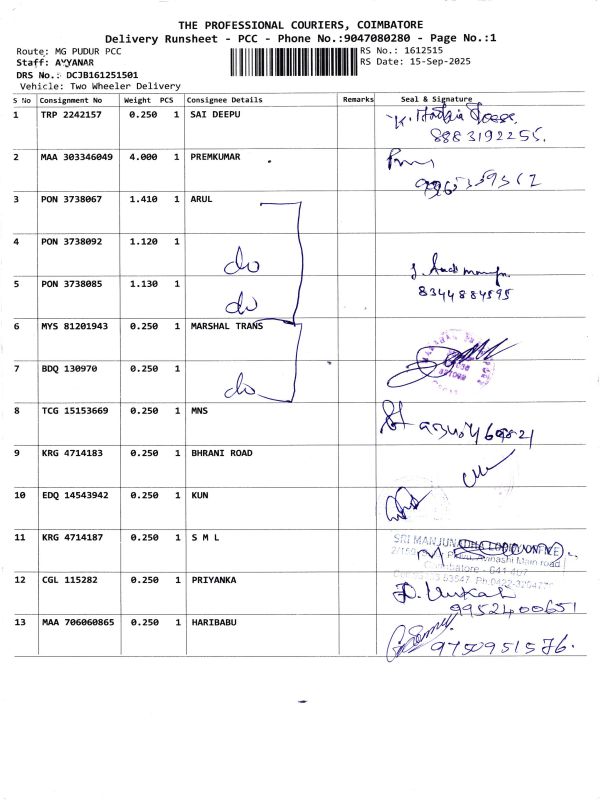 THE PROFESSIONAL COURIERS, COIMBATORE
Delivery Runsheet - PCC - Phone No.:9047080280 - Page No.:1
Route: MG PUDUR PCC
RS No.: 1612515
Staff: AYYANAR
RS Date: 15-Sep-2025
DRS No.: DCJB161251501
Vehicle: Two Wheeler Delivery
S No Consignment No Weight PCS Consignee Details Remarks Seal & Signature
1 TRP 2242157 0.250 1 SAI DEEPU
8883192255.
2 MAA 303346049 4.000 1 PREMKUMAR
3 PON 3738067 1.410 1 ARUL
4 PON 3738092 1.120 1
do
5 PON 3738085 1.130 1
8344884595
do
6 MYS 81201943 0.250 1 MARSHAL TRANS
7 BDQ 130970 0.250 1
do
8 TCG 15153669 0.250 1 MNS
9 KRG 4714183 0.250 1 BHRANI ROAD
10 EDQ 14543942 0.250 1 KUN
11 KRG 4714187 0.250 1 S M L
SRI MANJUNADHA
Avinashi Main road
Coimbatore - 641 407
12 CGL 115282 0.250 1 PRIYANKA
9952400651
13 MAA 706060865 0.250 1 HARIBABU
9750951576.